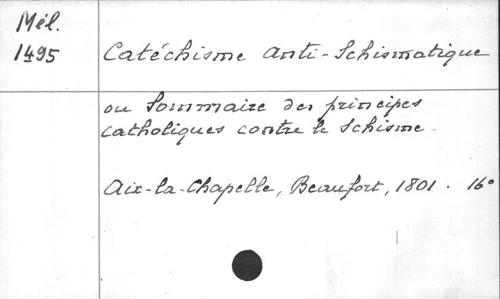 Mél.
1495
Catéchisme Anti-Schismatique
ou Sommaire des principes
catholiques contre le Schisme.
Aix-la-Chapelle, Beaufort, 1801. 16°